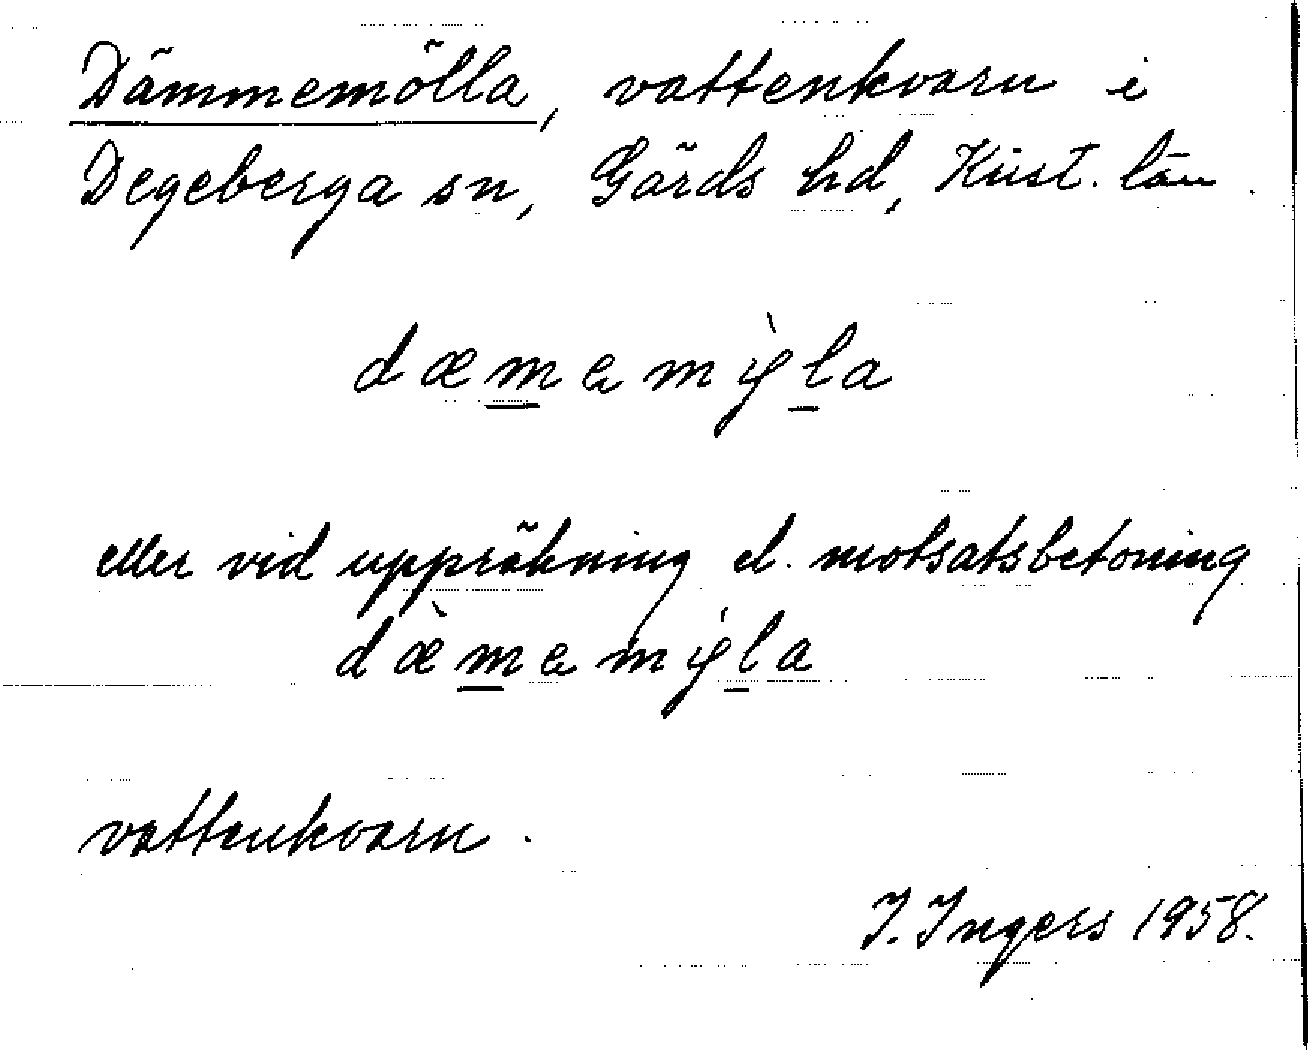 Dämmemölla, vattenkvarn i
Degeberga sn, Gärds hd, Krist. län.
dæmemỳla
eller vid uppräkning el. motsatsbetoning
dæ̀memýla
vattenkvarn.
I. Ingers 1958.